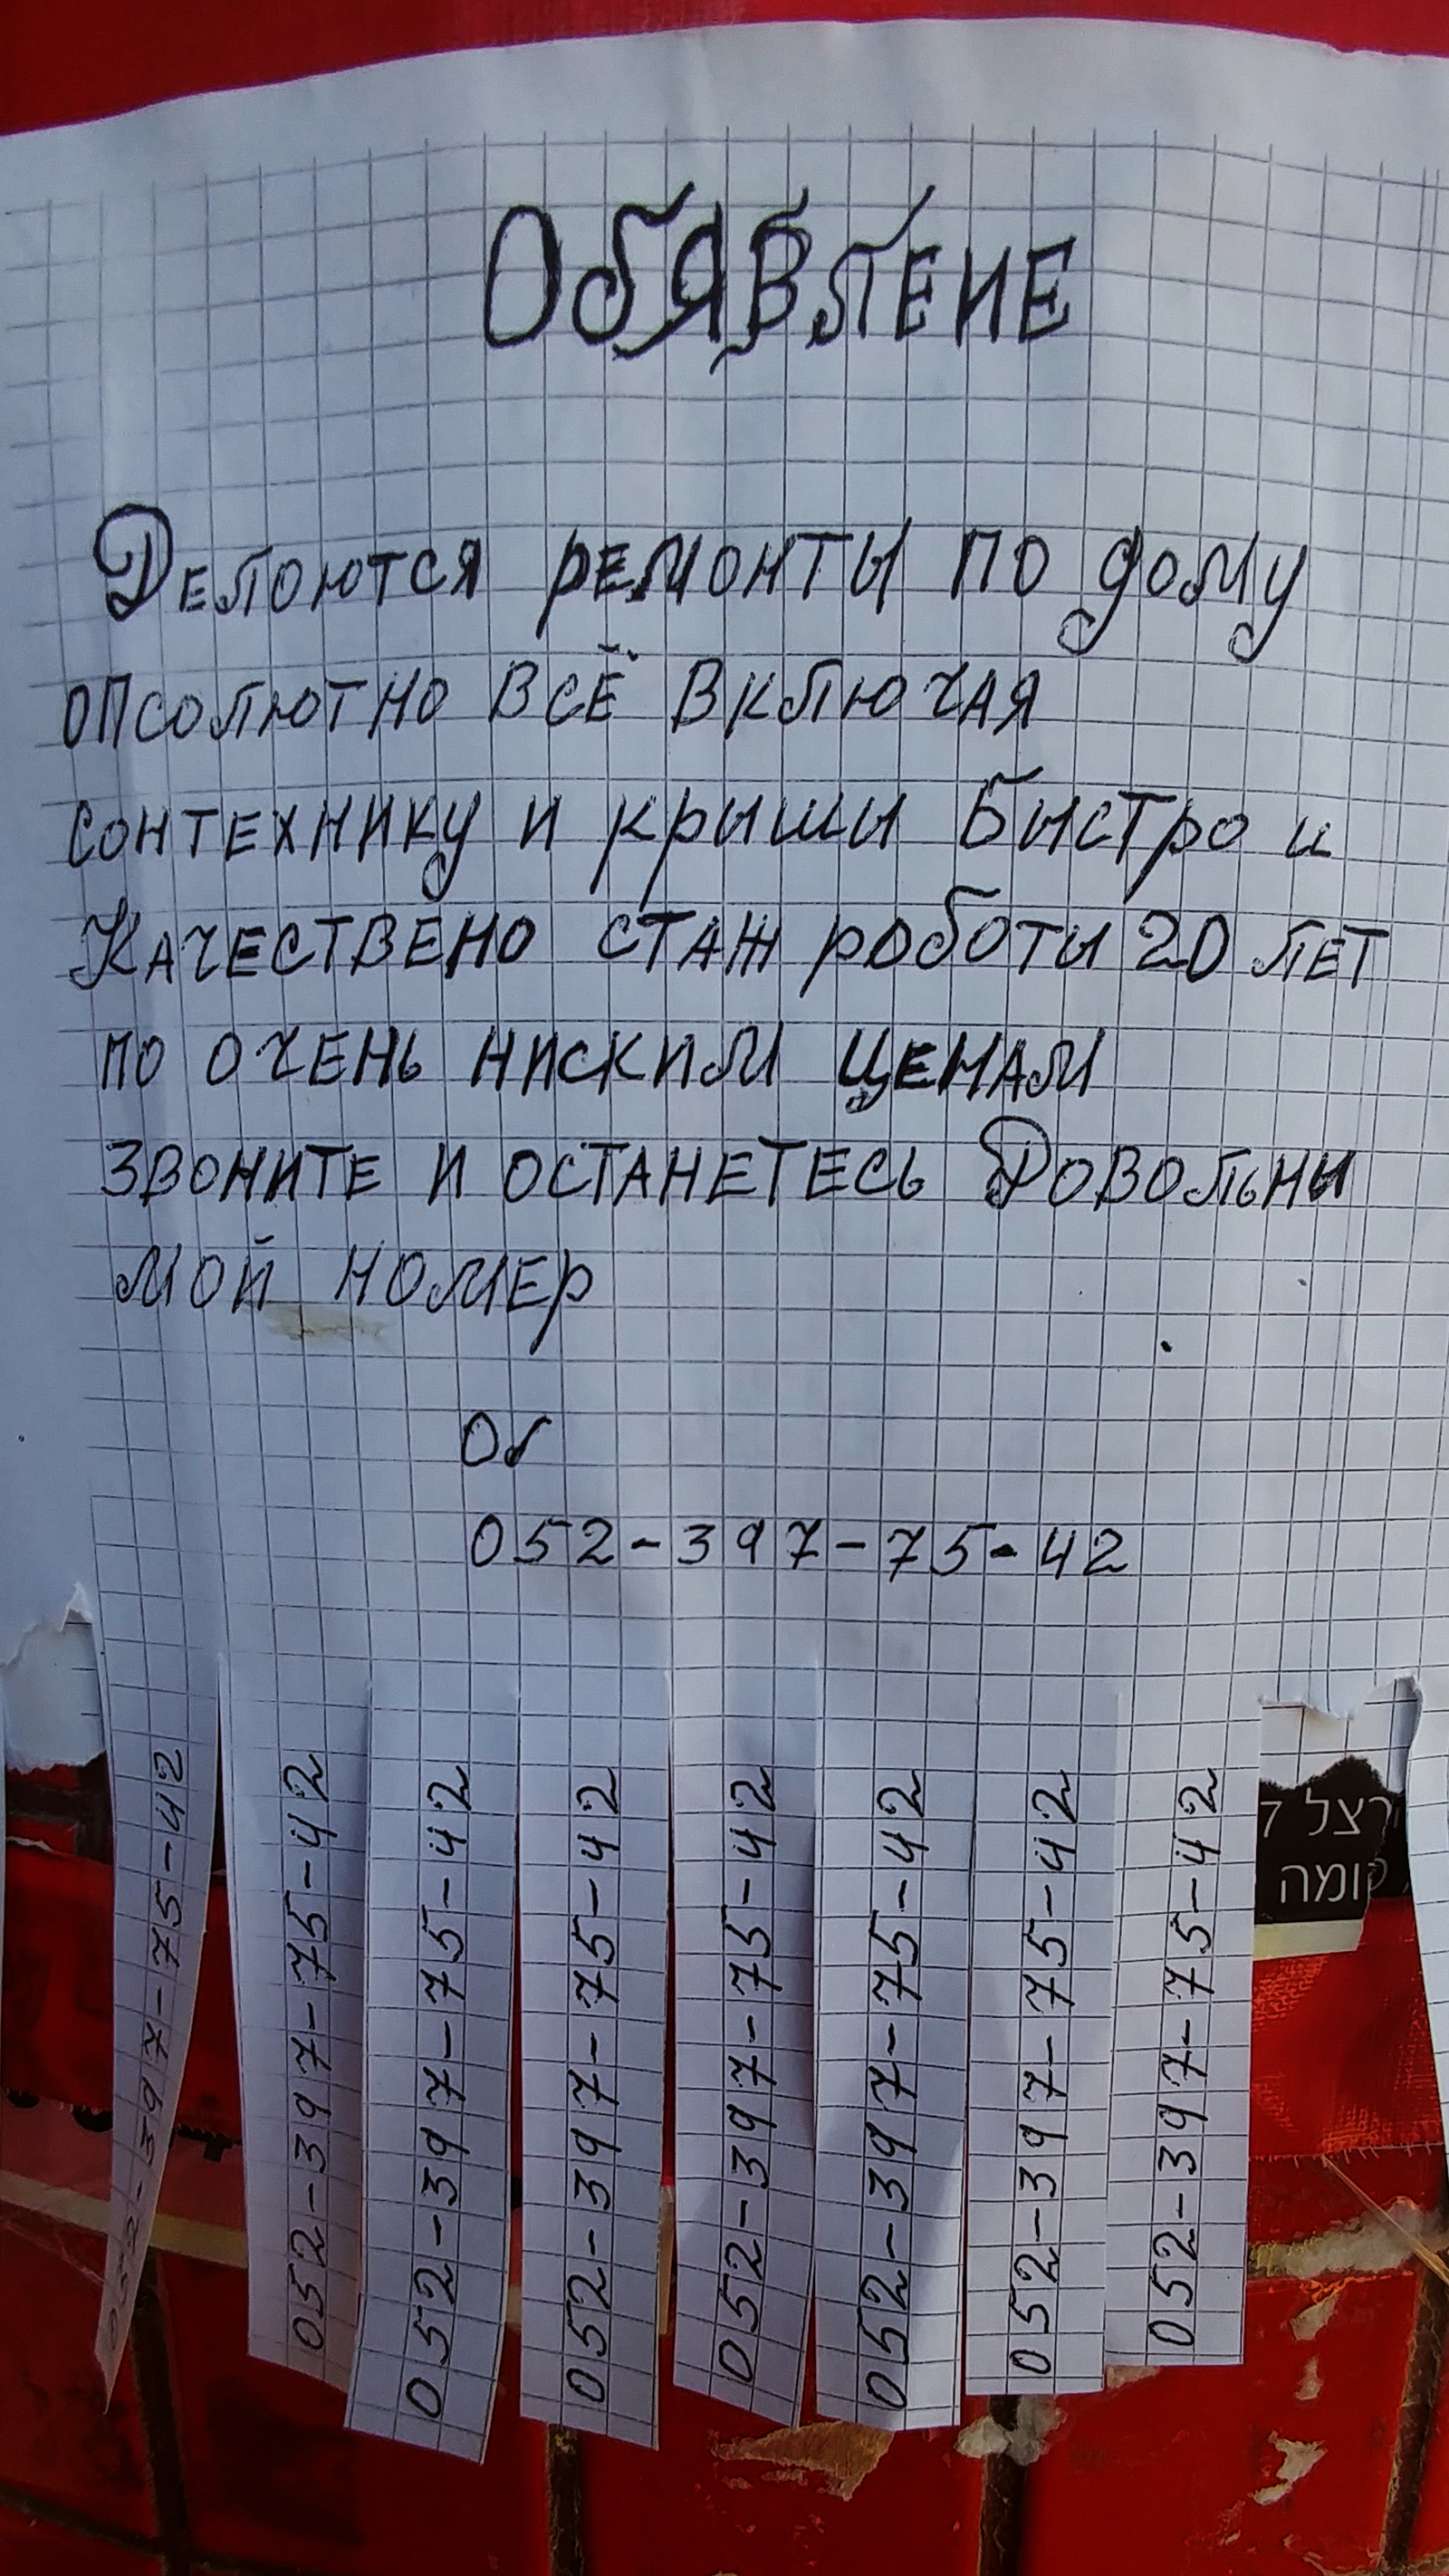 Обявление
Делоются ремонты по дому
опсолютно всё включая
сонтехнику и крыши Быстро и
Качествено стаж роботы 20 лет
по очень ниским ценам
звоните и останетесь Довольни
мой номер
052-397-75-42
052-397-75-42
052-397-75-42
052-397-75-42
052-397-75-42
052-397-75-42
052-397-75-42
052-397-75-42
052-397-75-42
קומה